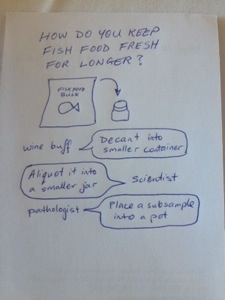 HOW DO YOU KEEP
FISH FOOD FRESH
FOR LONGER?
FISH FOOD
BULK
wine buff
Decant into
smaller container
Aliquot it into
a smaller jar
Scientist
pathologist
Place a subsample
into a pot